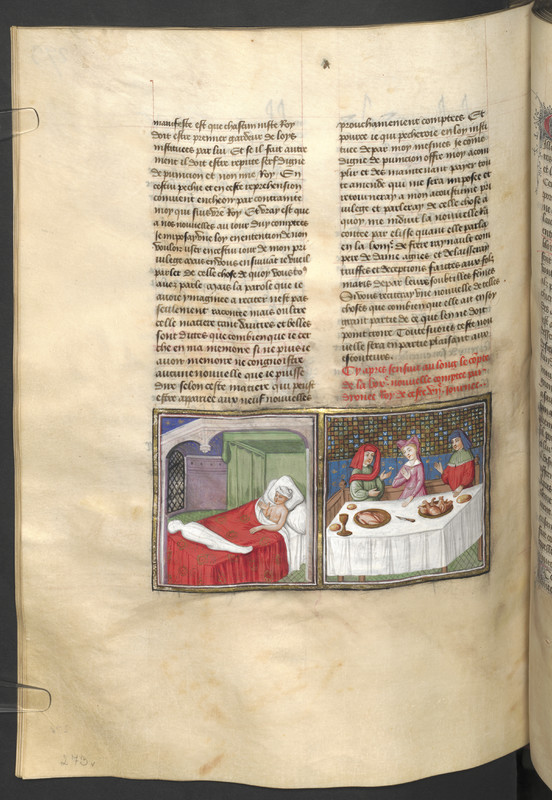 manifeste est que chascun iuste Roy
doit estre premier gardeur de loys
instituees par lui Et se il fait autre
ment il doit estre repute serf digne
de punicion et non mie Roy En
cestui peche et en ceste reprehension
convient encheoir par contrainte
moy qui suis vostre Roy Et vray est que
a nos nouvelles au jour duy comptees
je imposay une loy en entention de non
vouloir user en cestui jour de mon pri
vilege mais en vous ensuivant je vueil
parler de celle chose de quoy vous to9
avez parle mais la parole que je
avoie ymaginee a reciter nest pas
seulement racontee mais oultre
celle matiere tant dautres et belles
sont dictes que combien que je cer
che en ma memoire si ne puis je
avoir memoire ne congnoistre
aucune nouvelle que je puisse
dire selon ceste matiere qui peust
estre appariee aux neuf nouvelles
prouchainement comptees Et
pource je qui pecheroie en loy insti
tuee de par moy mesmes je comme
digne de punicion offre moy acom
plir et des maintenant payer tou
te amende qui me sera imposee et
retourneray a mon acoustume pri
vilege et parleray de celle chose a
quoy me induit la nouvelle ra
contee par elisse quant elle parla
en la hystoire de frere raynault com
pere de dame agnes et delaisseray
truffes et decepcions faictes aux folz
maris de par leurs soubtilles femmes
Si vous reciteray une nouvelle de telles
choses que combien que elle ait en soy
grant partie de ce que len ne doit
point croire Toutesfois ceste nou
velle sera en partie plaisant aux
escouteurs
Cy apres sensuit au long le compte
de la nouvelle comptee par
dionee Roy de ceste journee
273v